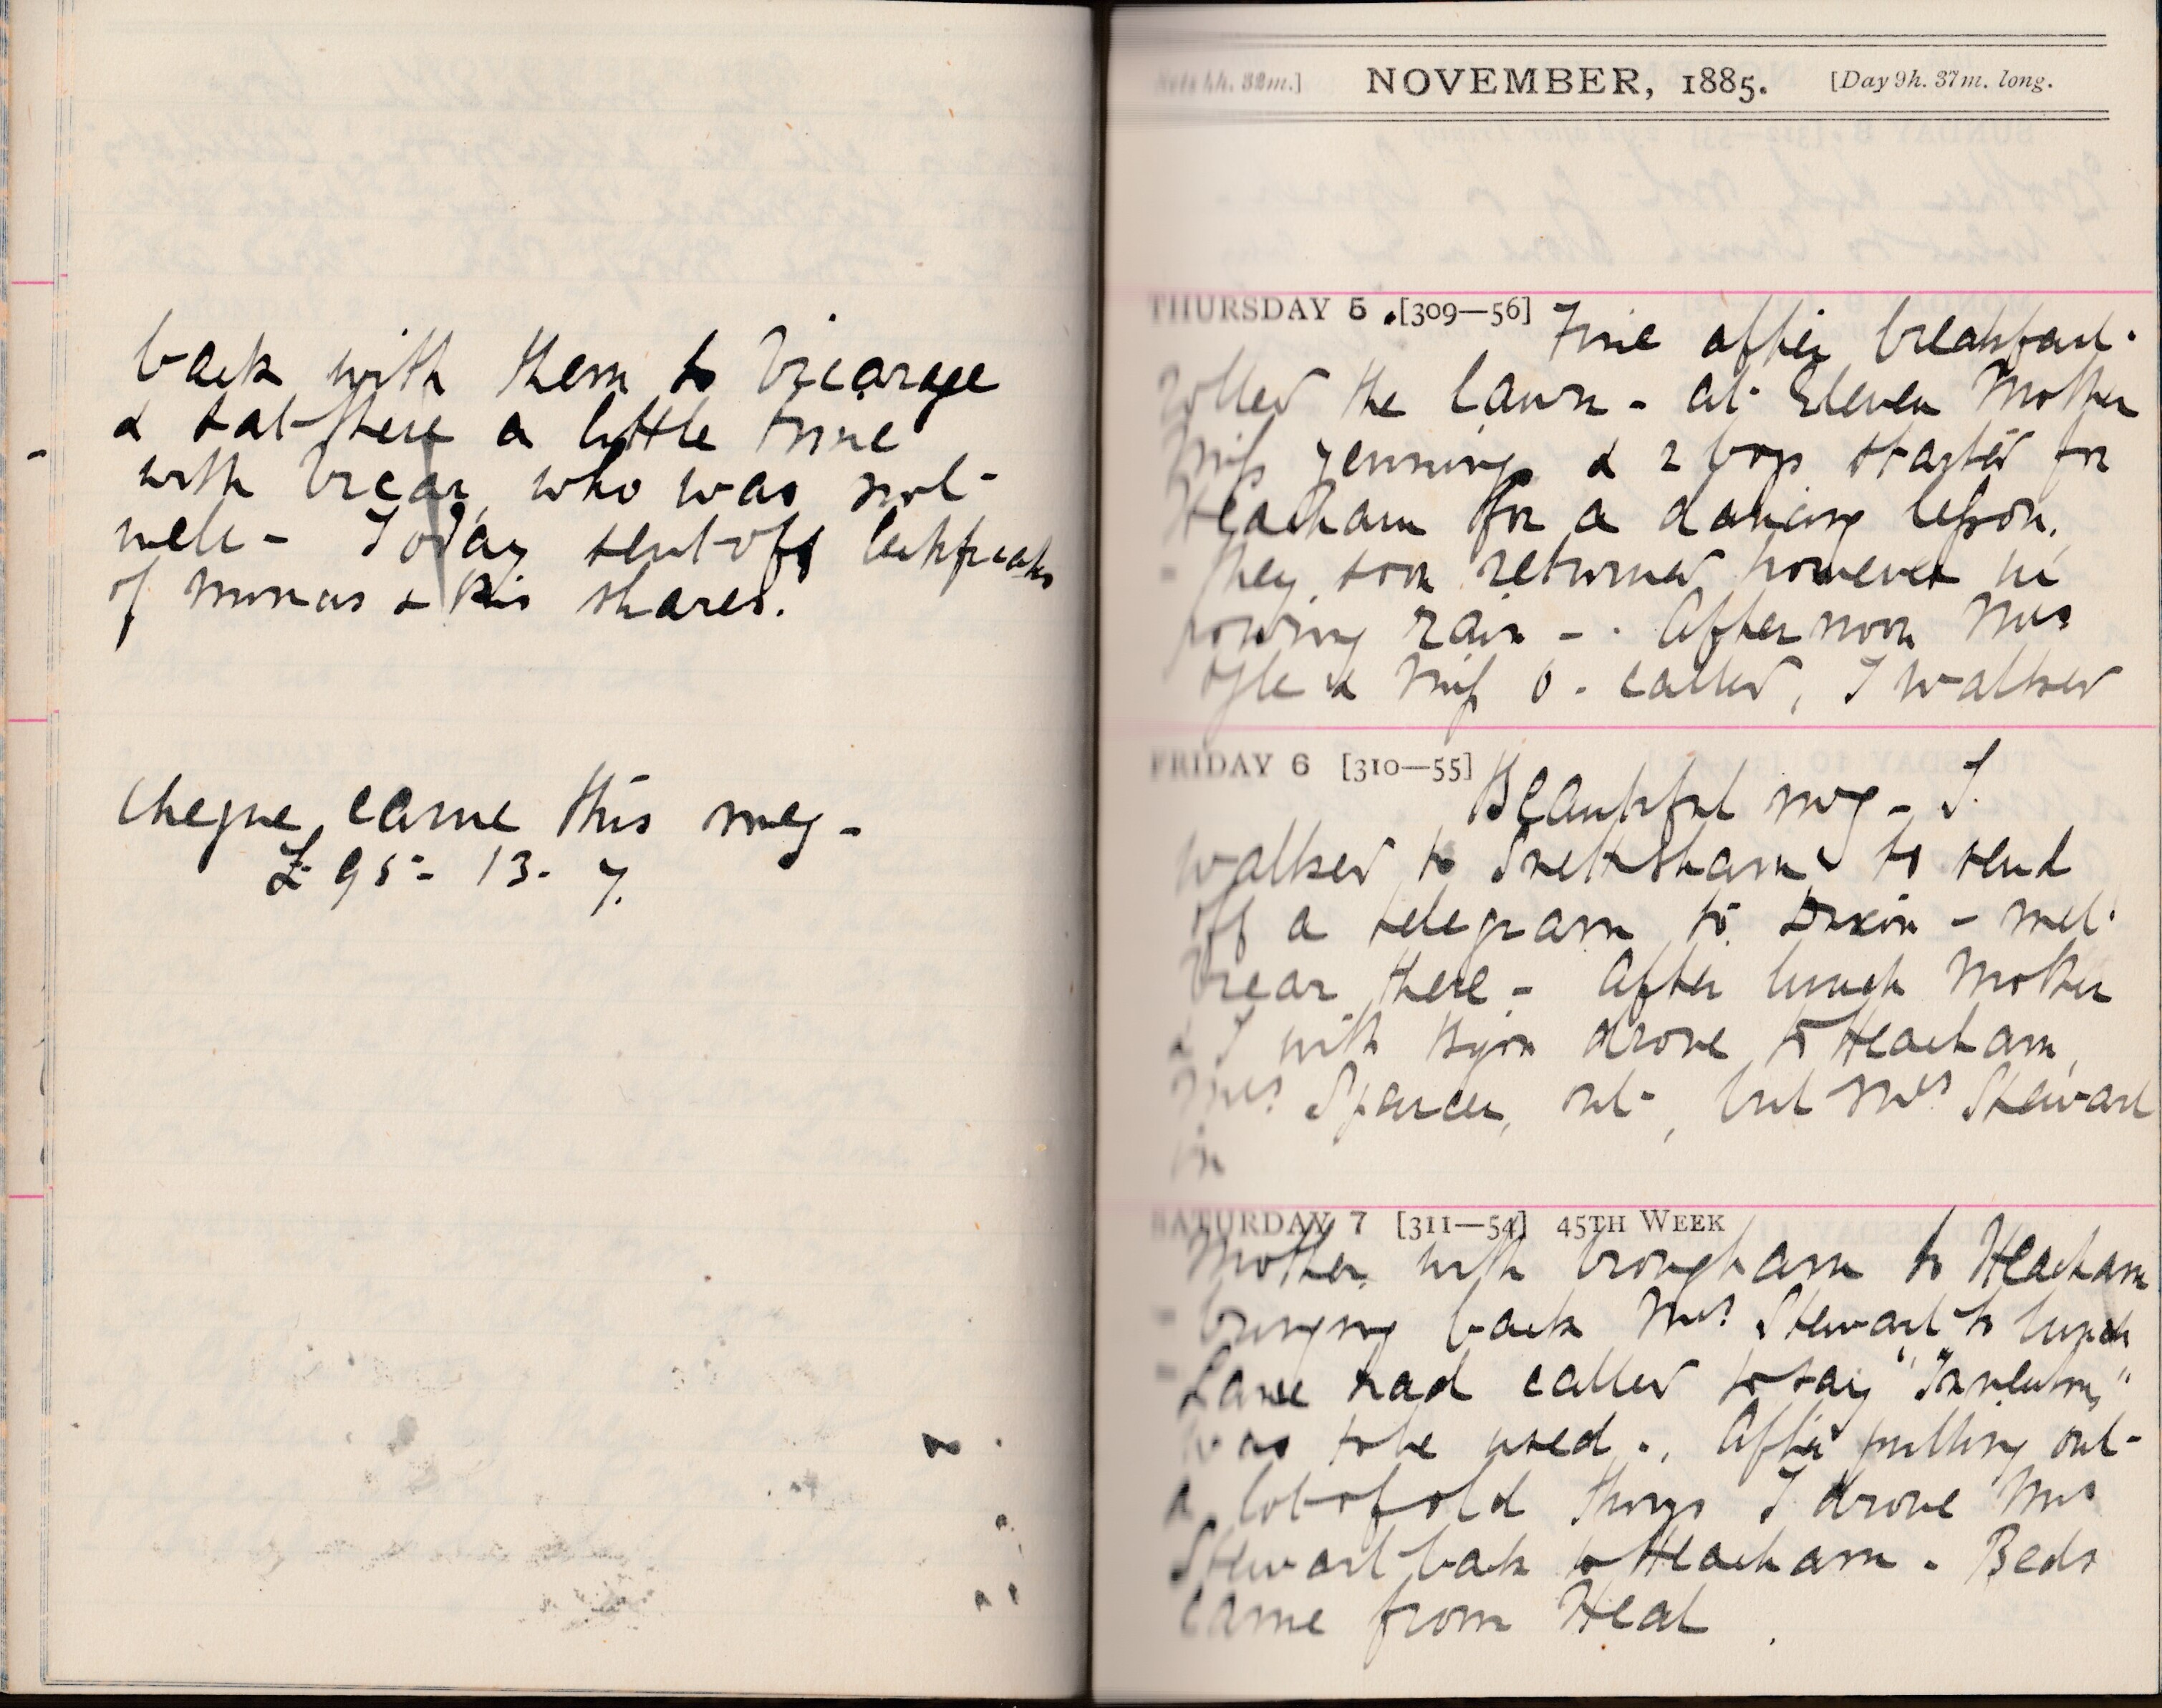 back with them to Vicarage
& sat there a little time
with Vicar, who was not
well - Today sent off certificates
of & Rio shares.
cheque came this mg -
£ 95 - 13 - 7.
NOVEMBER, 1885. [Day 9h. 37m. long.
THURSDAY 5 [309—56] Fine after breakfast.
rolled the lawn - at Eleven Mother
Miss Jennings & 2 boys started for
Heacham for a dancing lesson,
they soon returned however in
pouring rain - . Afternoon Mrs
Ogle & Miss O. called, I walked
FRIDAY 6 [310—55] Beautiful mg - I
walked to Snettisham to send
off a telegram to Dixon - met
Vicar there - After lunch Mother
& I with drove to Heacham,
Mrs Spencer, out, but Mrs Stewart
in
SATURDAY 7 [311—54] 45TH WEEK
Mother with brougham to Heacham
bringing back Mrs Stewart to lunch
Lane had called to say
was to be used . After putting out
a lot of old things I drove Mrs
Stewart back to Heacham - Beds
came from Heal